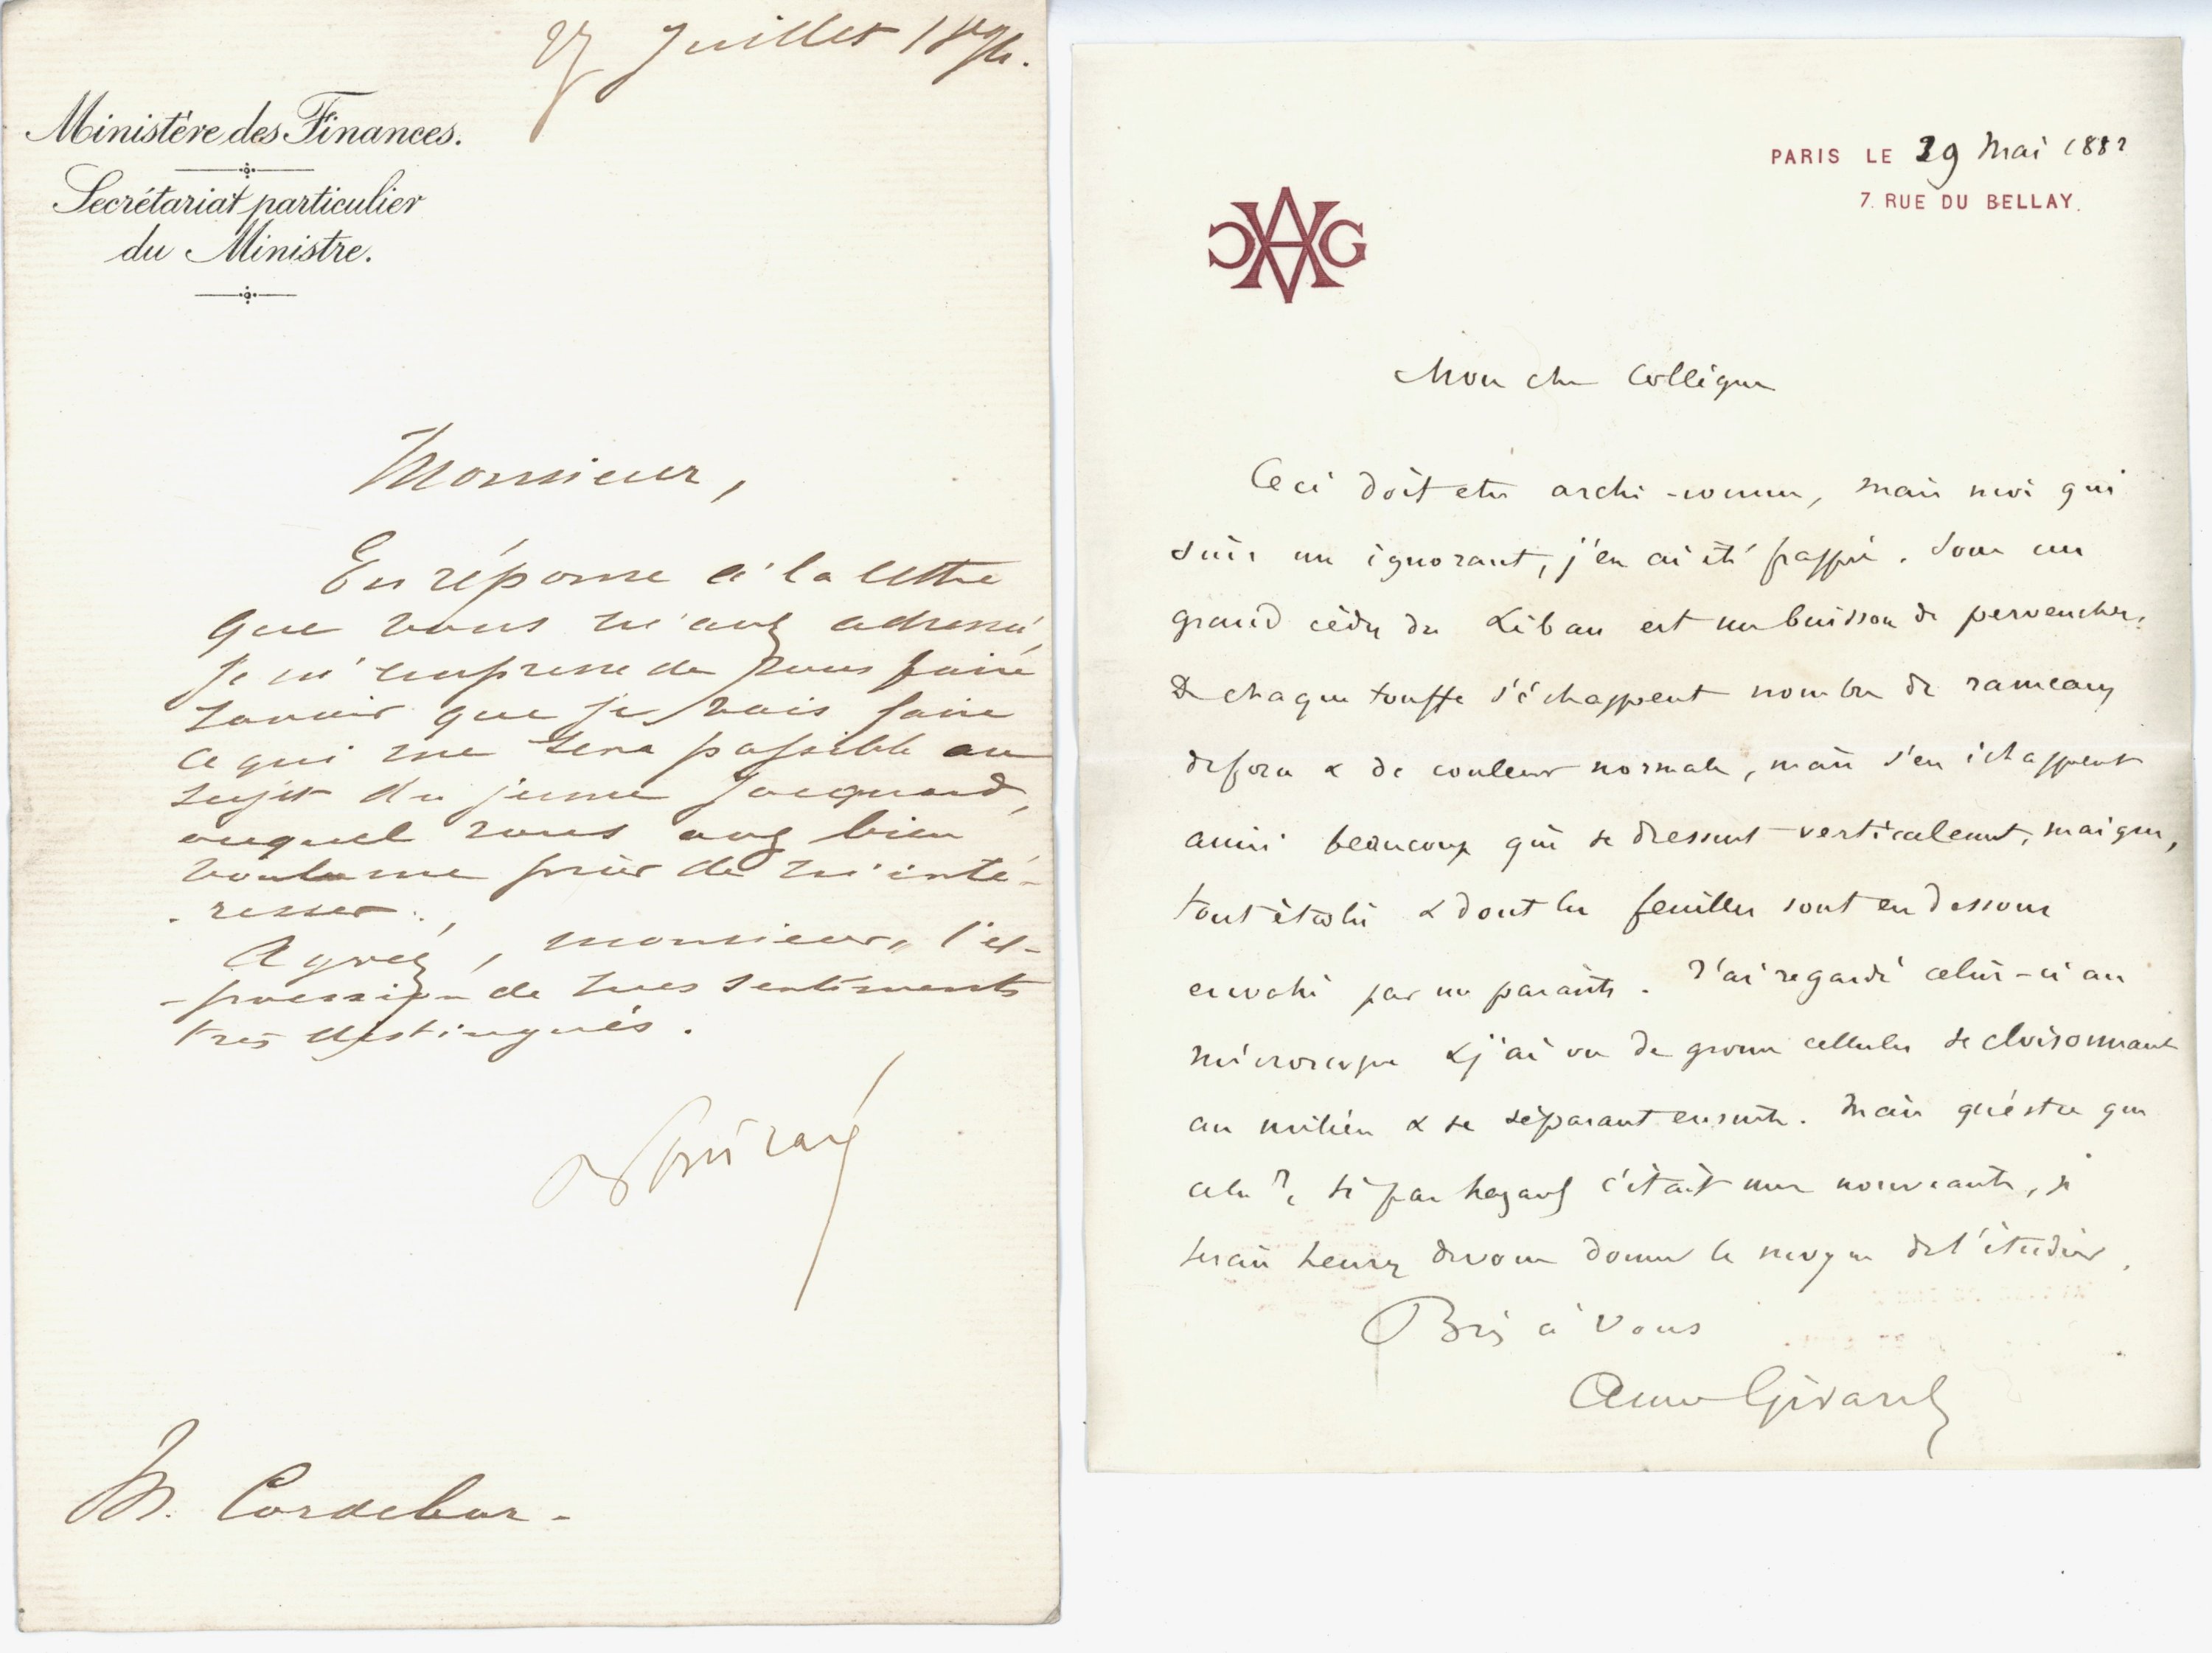 27 Juillet 1894.
Ministère des Finances.
Secrétariat particulier
du Ministre.
Monsieur,
En réponse à la lettre
que vous m'avez adressée,
je m'empresse de vous faire
savoir que je vais faire
ce qui me sera possible au
sujet du jeune Jacquard,
auquel vous avez bien
voulu me prier de m'inté-
-resser.
Agréez, monsieur, l'ex-
-pression de mes sentiments
très distingués.
Poincaré
M. Cordebar.
PARIS LE 29 Mai 1882
7. RUE DU BELLAY.
Mon cher Collègue
Ceci doit etre archi-connu, mais moi qui
suis un ignorant, j'en ai été frappé. Sous un
grand cèdre du Liban est un buisson de pervenches.
De chaque touffe s'échappent nombre de rameaux
de port & de couleur normale, mais s'en échappent
aussi beaucoup qui se dressent verticalement, maigres,
tout étiolés & dont les feuilles sont en dessous
envahies par un parasite. J'ai regardé celui-ci au
microscope & j'ai vu de grosses cellules se cloisonnant
au milieu & se séparant ensuite. Mais qu'est ce que
cela ? si par hazard c'était une nouveauté, je
serais heureux de vous donner le moyen de l'étudier.
Bien à vous
Aimé Girard